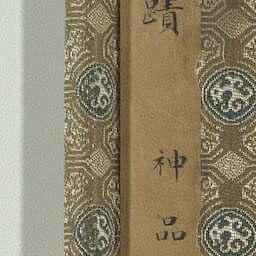 蹟
神品